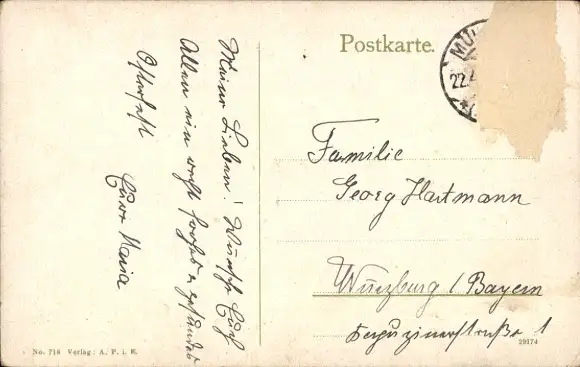 Postkarte.
MÜ
22.4
Meine Lieben! Wünsche Euch
Allen ein recht frohes u gesundes
Osterfest
Eure Maria
Familie
Georg Hartmann
Würzburg / Bayern
Kapuzinerstraße 1
No. 718 Verlag: A. P. i. E.
29174